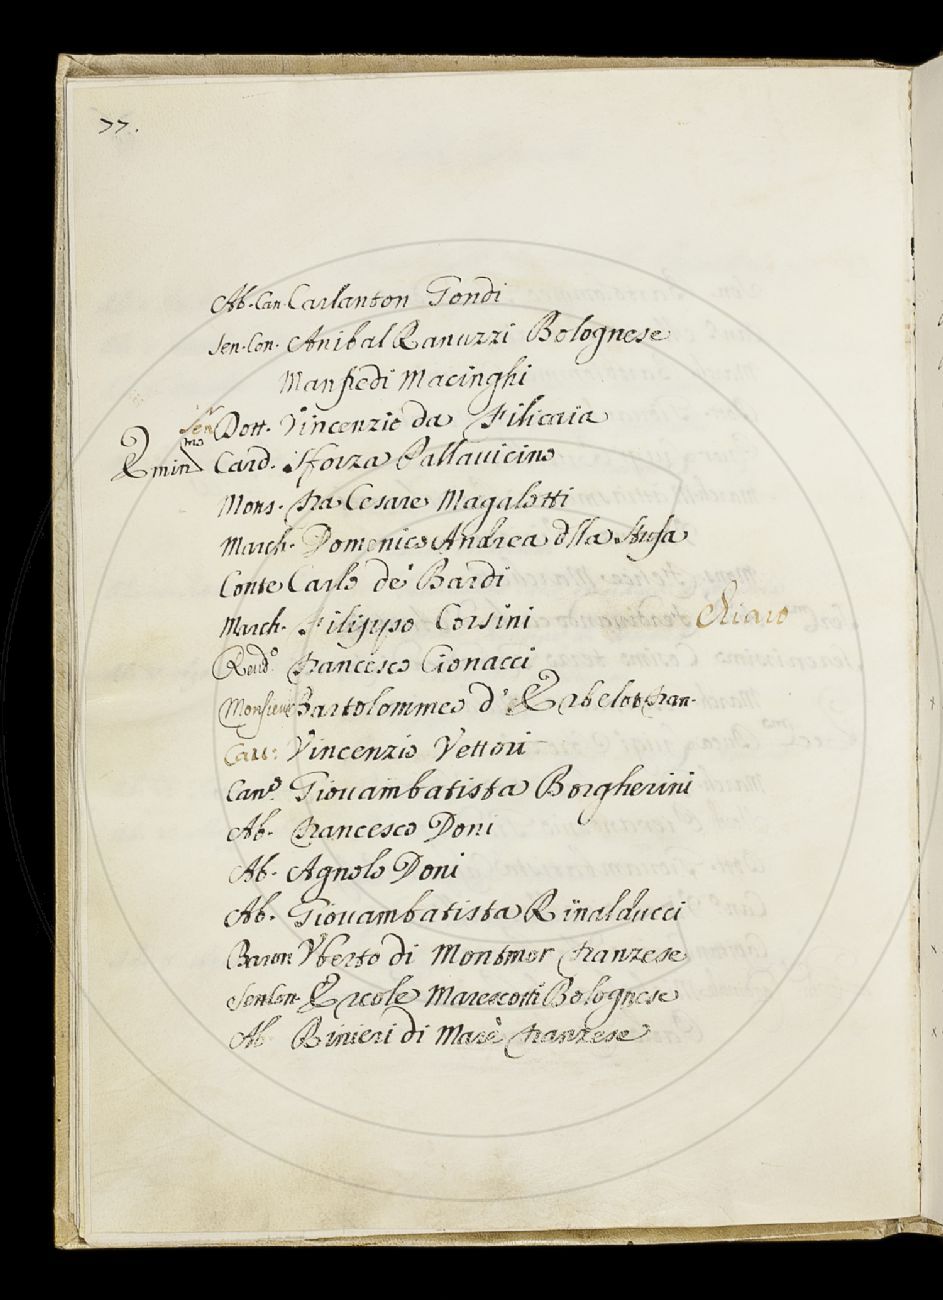 77.
Ab. Can. Carlanton Gondi
Sen. Con. Anibal Ranuzzi Bolognese
Manfredi Macinghi
Senr Dott. Vincenzio da Filicaia
Eminmo Card. Sforza Pallavicino
Mons. fra Cesare Magalotti
March. Domenico Andrea dlla Stufa
Conte Carlo de' Bardi
March. Filippo Corsini Chiaro
Revdo. francesco Cionacci
Monsieur Bartolommeo d'Erbelot fran-
Cav: Vincenzio Vettori
Cano. Giovambatista Borgherini
Ab. francesco Doni
Ab. Agnolo Doni
Ab. Giovambatista Rinalducci
Baron Vberto di Montmor franzese
Sen Con. Ercole Marescotti Bolognese
Ab. Rinieri di Marè franzese